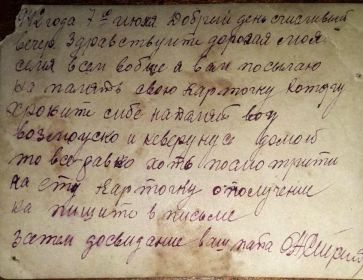 942 года 7го июня Добрый день счасливый
вечер Здравствуите дорогая моя
семя всем вобще я вам посылаю
на память свою карточку котору
хроните сибе на памяй вот
возмоуско и неверунус домой
то все равно хоть посмотрити
на ету карточку ополучение
на пишите в писме
зетем досвидание ваш папа